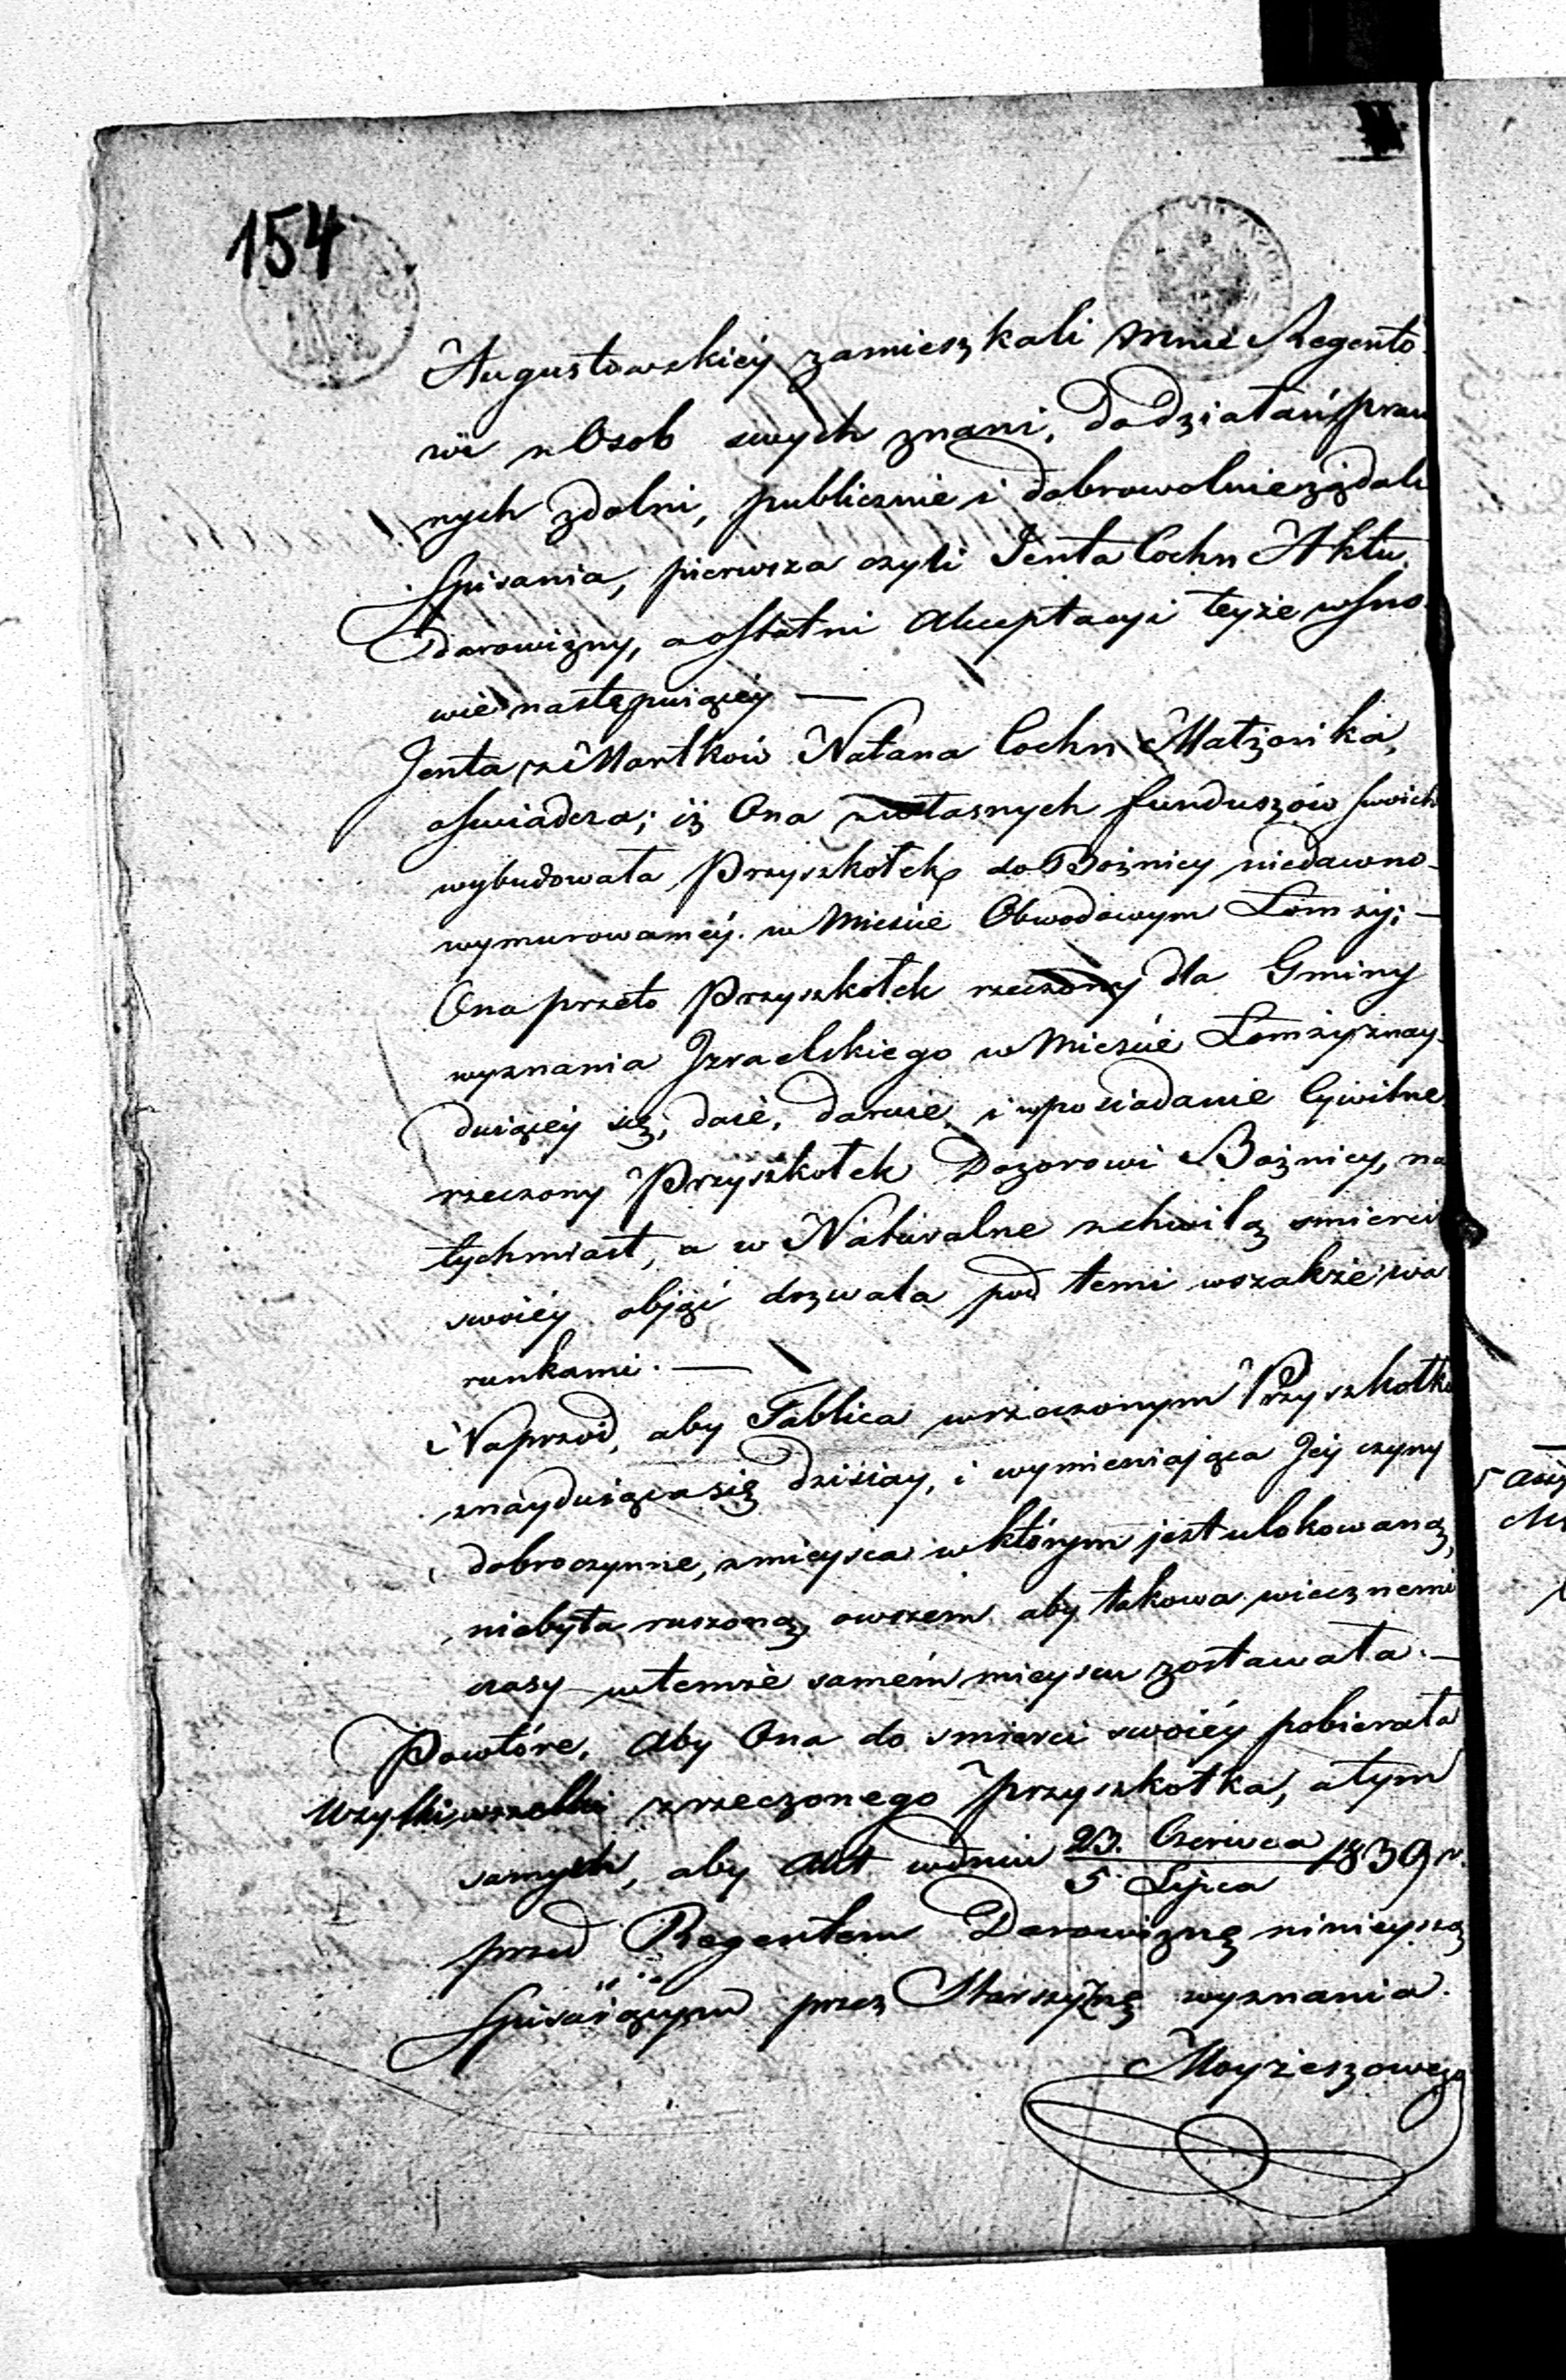 154
Augustowskiéy zamieszkali mnie Regento
wi z Osob swych znani, do działań praw
nych zdolni, publicznie i dobrowolnie żądali
spisania, pierwsza czyli Jenta Cochn Aktu
darowizny, a ostatni akceptacyi teyże w sno
wie następuiącéy —
Jenta z Martków Natana Cochn Małżonka,
oświadcza; iż Ona z własnych funduszów swoich
wybudowała Przyszkołek do Bożnicy niedawno
wymurowanéy w Mieście Obwodowym Łomży; —
Ona przeto Przyszkołek rzeczony dla Gminy
wyznania Izraelskiego w Mieście Łomży znay
duiącéy się, daie, daruie, i w posiadanie Cywilne
rzeczony Przyszkołek Dozorowi Bożnicy, na
tychmiast, a w Naturalne z chwilą śmierci
swoiéy obiąć dozwala pod temi wszakże wa
runkami. —
Naprzód, aby Tablica w rzeczonym Przyszkołku
znayduiąca się dzisiay, i wymieniająca Jéy czyny
dobroczynne, z mieysca w którym jest ulokowaną,
niebyła ruszoną, owszem aby takowa wiecznemi
czasy w temże samém mieyscu zostawała. —
Powtóre, aby Ona do śmierci swoiéy pobierała
wszelki z rzeczonego przyszkołka, a tym
samych, aby Akt w dniu 23. Czerwca / 5 Lipca 1839 r.
przed Regentem Darowiznę ninieyszą
spisuiącym przez Starszyznę wyznania
Moyżeszowego